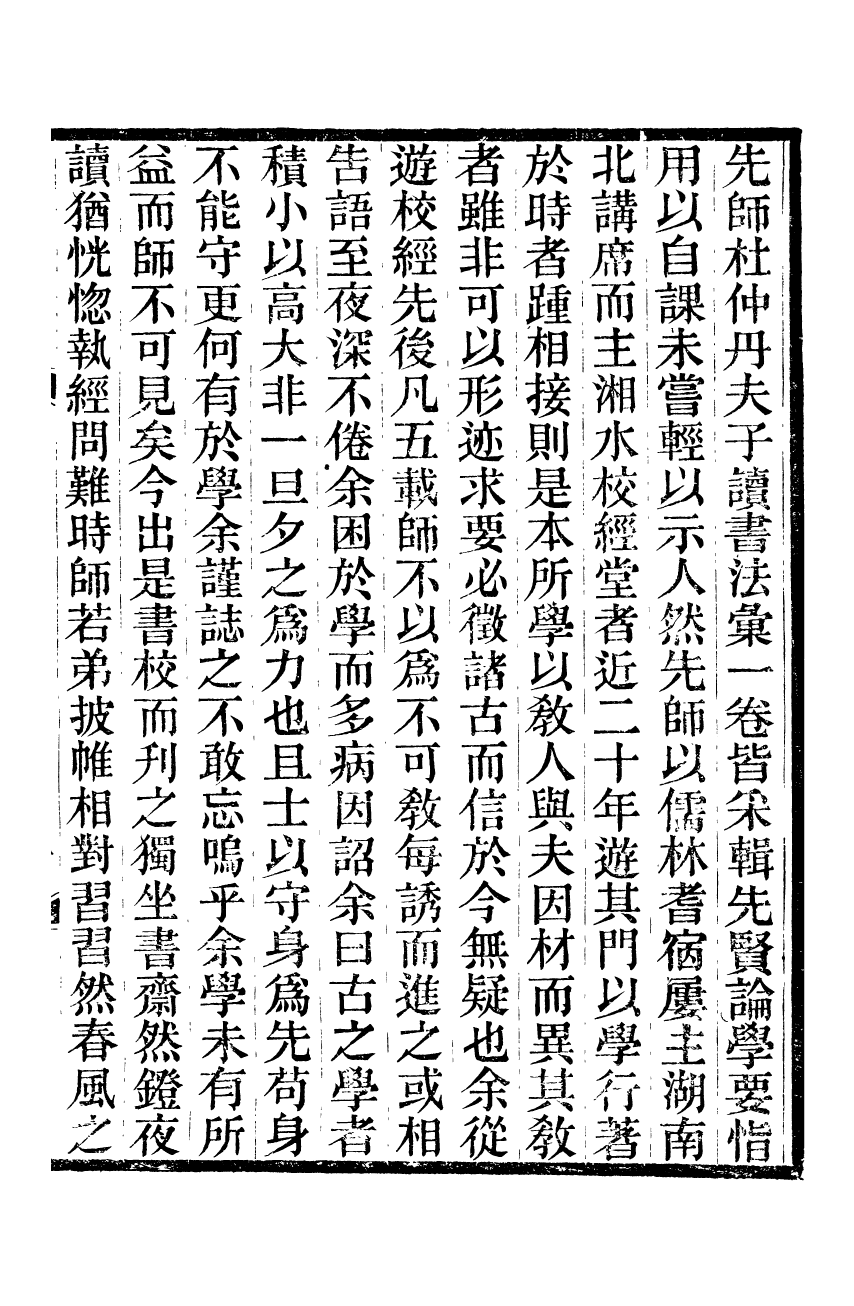 先師杜仲丹夫子讀書法彙一卷皆采輯先賢論學要恉
用以自課未嘗輕以示人然先師以儒林耆宿屢主湖南
北講席而主湘水校經堂者近二十年遊其門以學行著
於時者踵相接則是本所學以敎人與夫因材而異其敎
者雖非可以形迹求要必徵諸古而信於今無疑也余從
遊校經先後凡五載師不以爲不可敎每誘而進之或相
告語至夜深不倦余困於學而多病因詔余曰古之學者
積小以高大非一旦夕之爲力也且士以守身爲先苟身
不能守更何有於學余謹誌之不敢忘嗚乎余學未有所
益而師不可見矣今出是書校而刋之獨坐書齋然鐙夜
讀猶恍惚執經問難時師若弟披帷相對習習然春風之